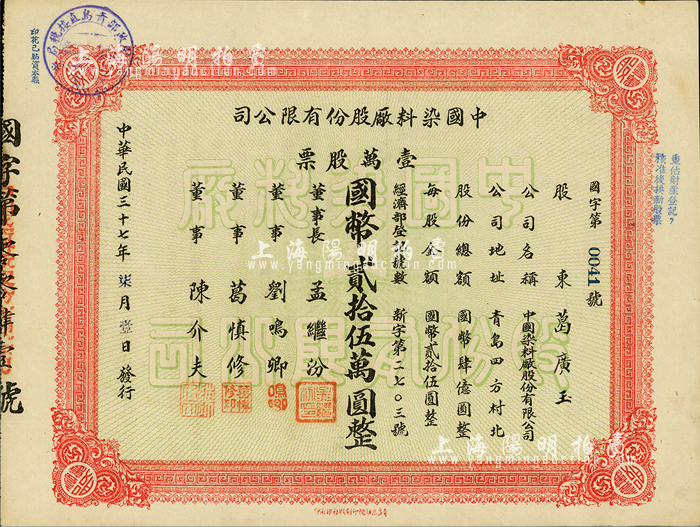 中國染料廠股份有限公司
壹萬股票
國字第0041號
股東 葛廣玉
公司名稱 中國染料廠股份有限公司
公司地址 青島四方村北
股份總額 國幣肆億圓整
每股金額 國幣貳拾伍圓整
經濟部登記號數 新字第二七〇三號
國幣貳拾伍萬圓整
董事長 孟繼汾
董事 劉鳴卿
董事 葛慎修
董事 陳介夫
中華民國三十七年柒月壹日發行
重估財產登記?
核准後換新股票
印花已貼資本冊
國字第
號
上海陽明拍賣
www.yangmingauction.com
上海陽明拍賣
www.yangmingauction.com
上海陽明拍賣
www.yangmingauction.com